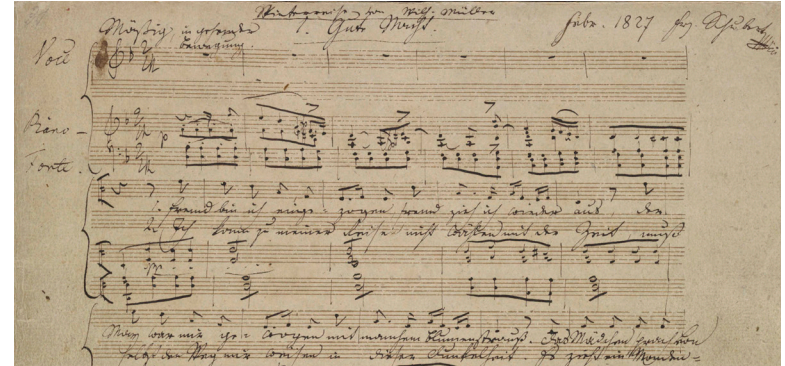 Winterreise von Wilh. Müller
Mäßig, in gehender 1. Gute Nacht. Febr. 1827 Frz. Schubert
Bewegung.
Voce
Piano-
Forte.
1. Fremd bin ich einge-zogen fremd zieh ich wieder aus der
2. Ich kann zu meiner Reise nicht wählen mit der Zeit muß
May war mir ge-wogen mit manchem Blumenstrauß. Das Mädchen sprach von
selbst den Weg mir weisen in dieser Dunkelheit. Es zieht ein Monden-